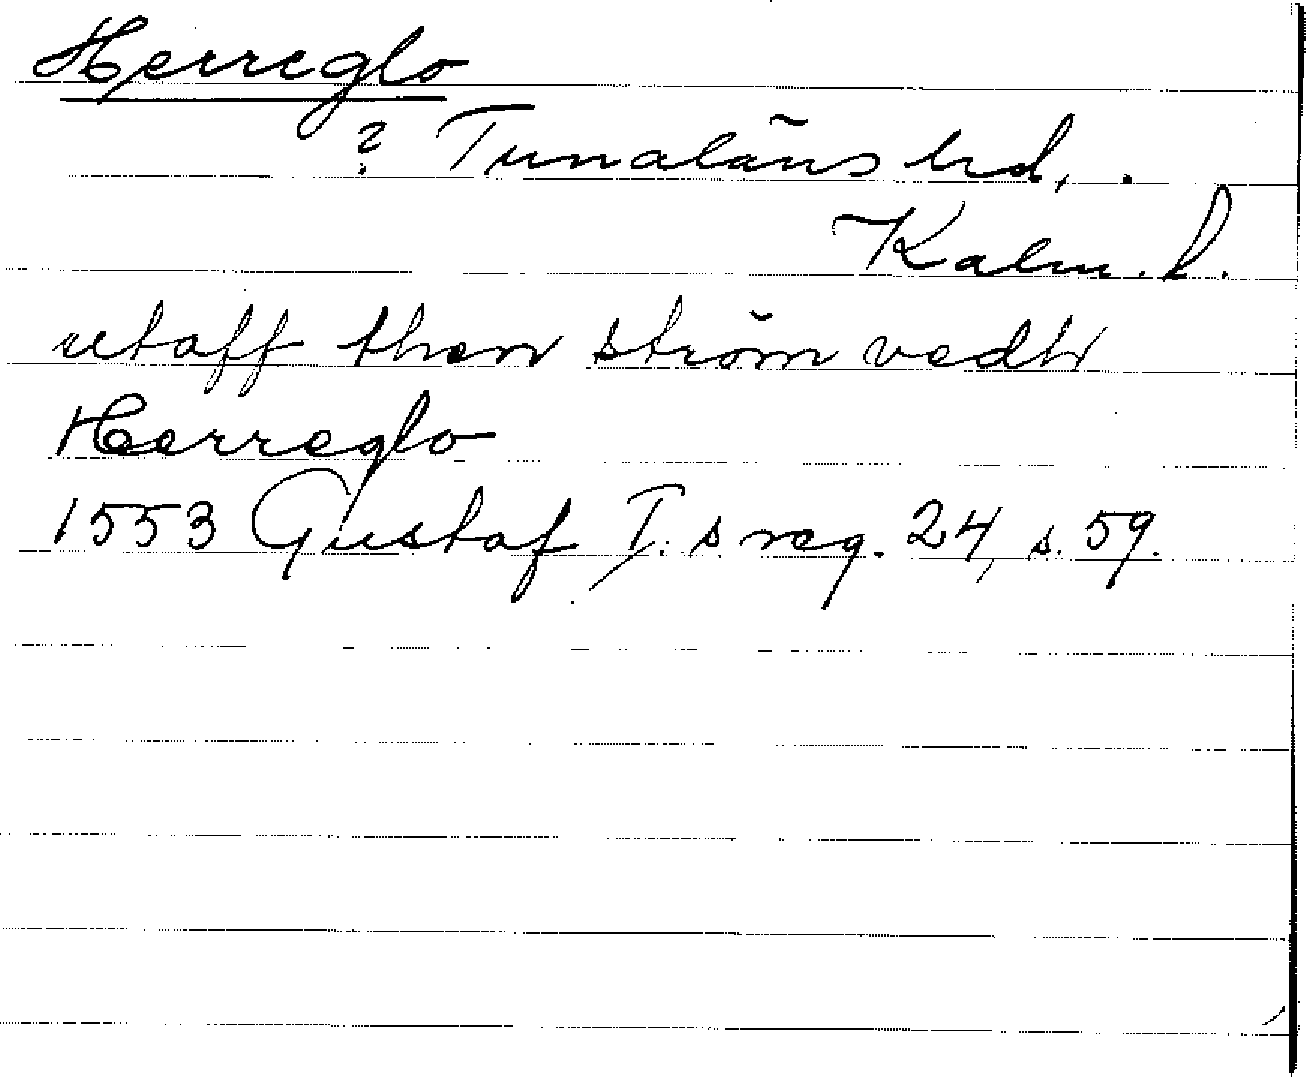 Herreglo
? Tunaläns hd, .
Kalm. l.
utaff then ström vedh
Herreglo
1553 Gustaf I:s reg. 24, s. 59.